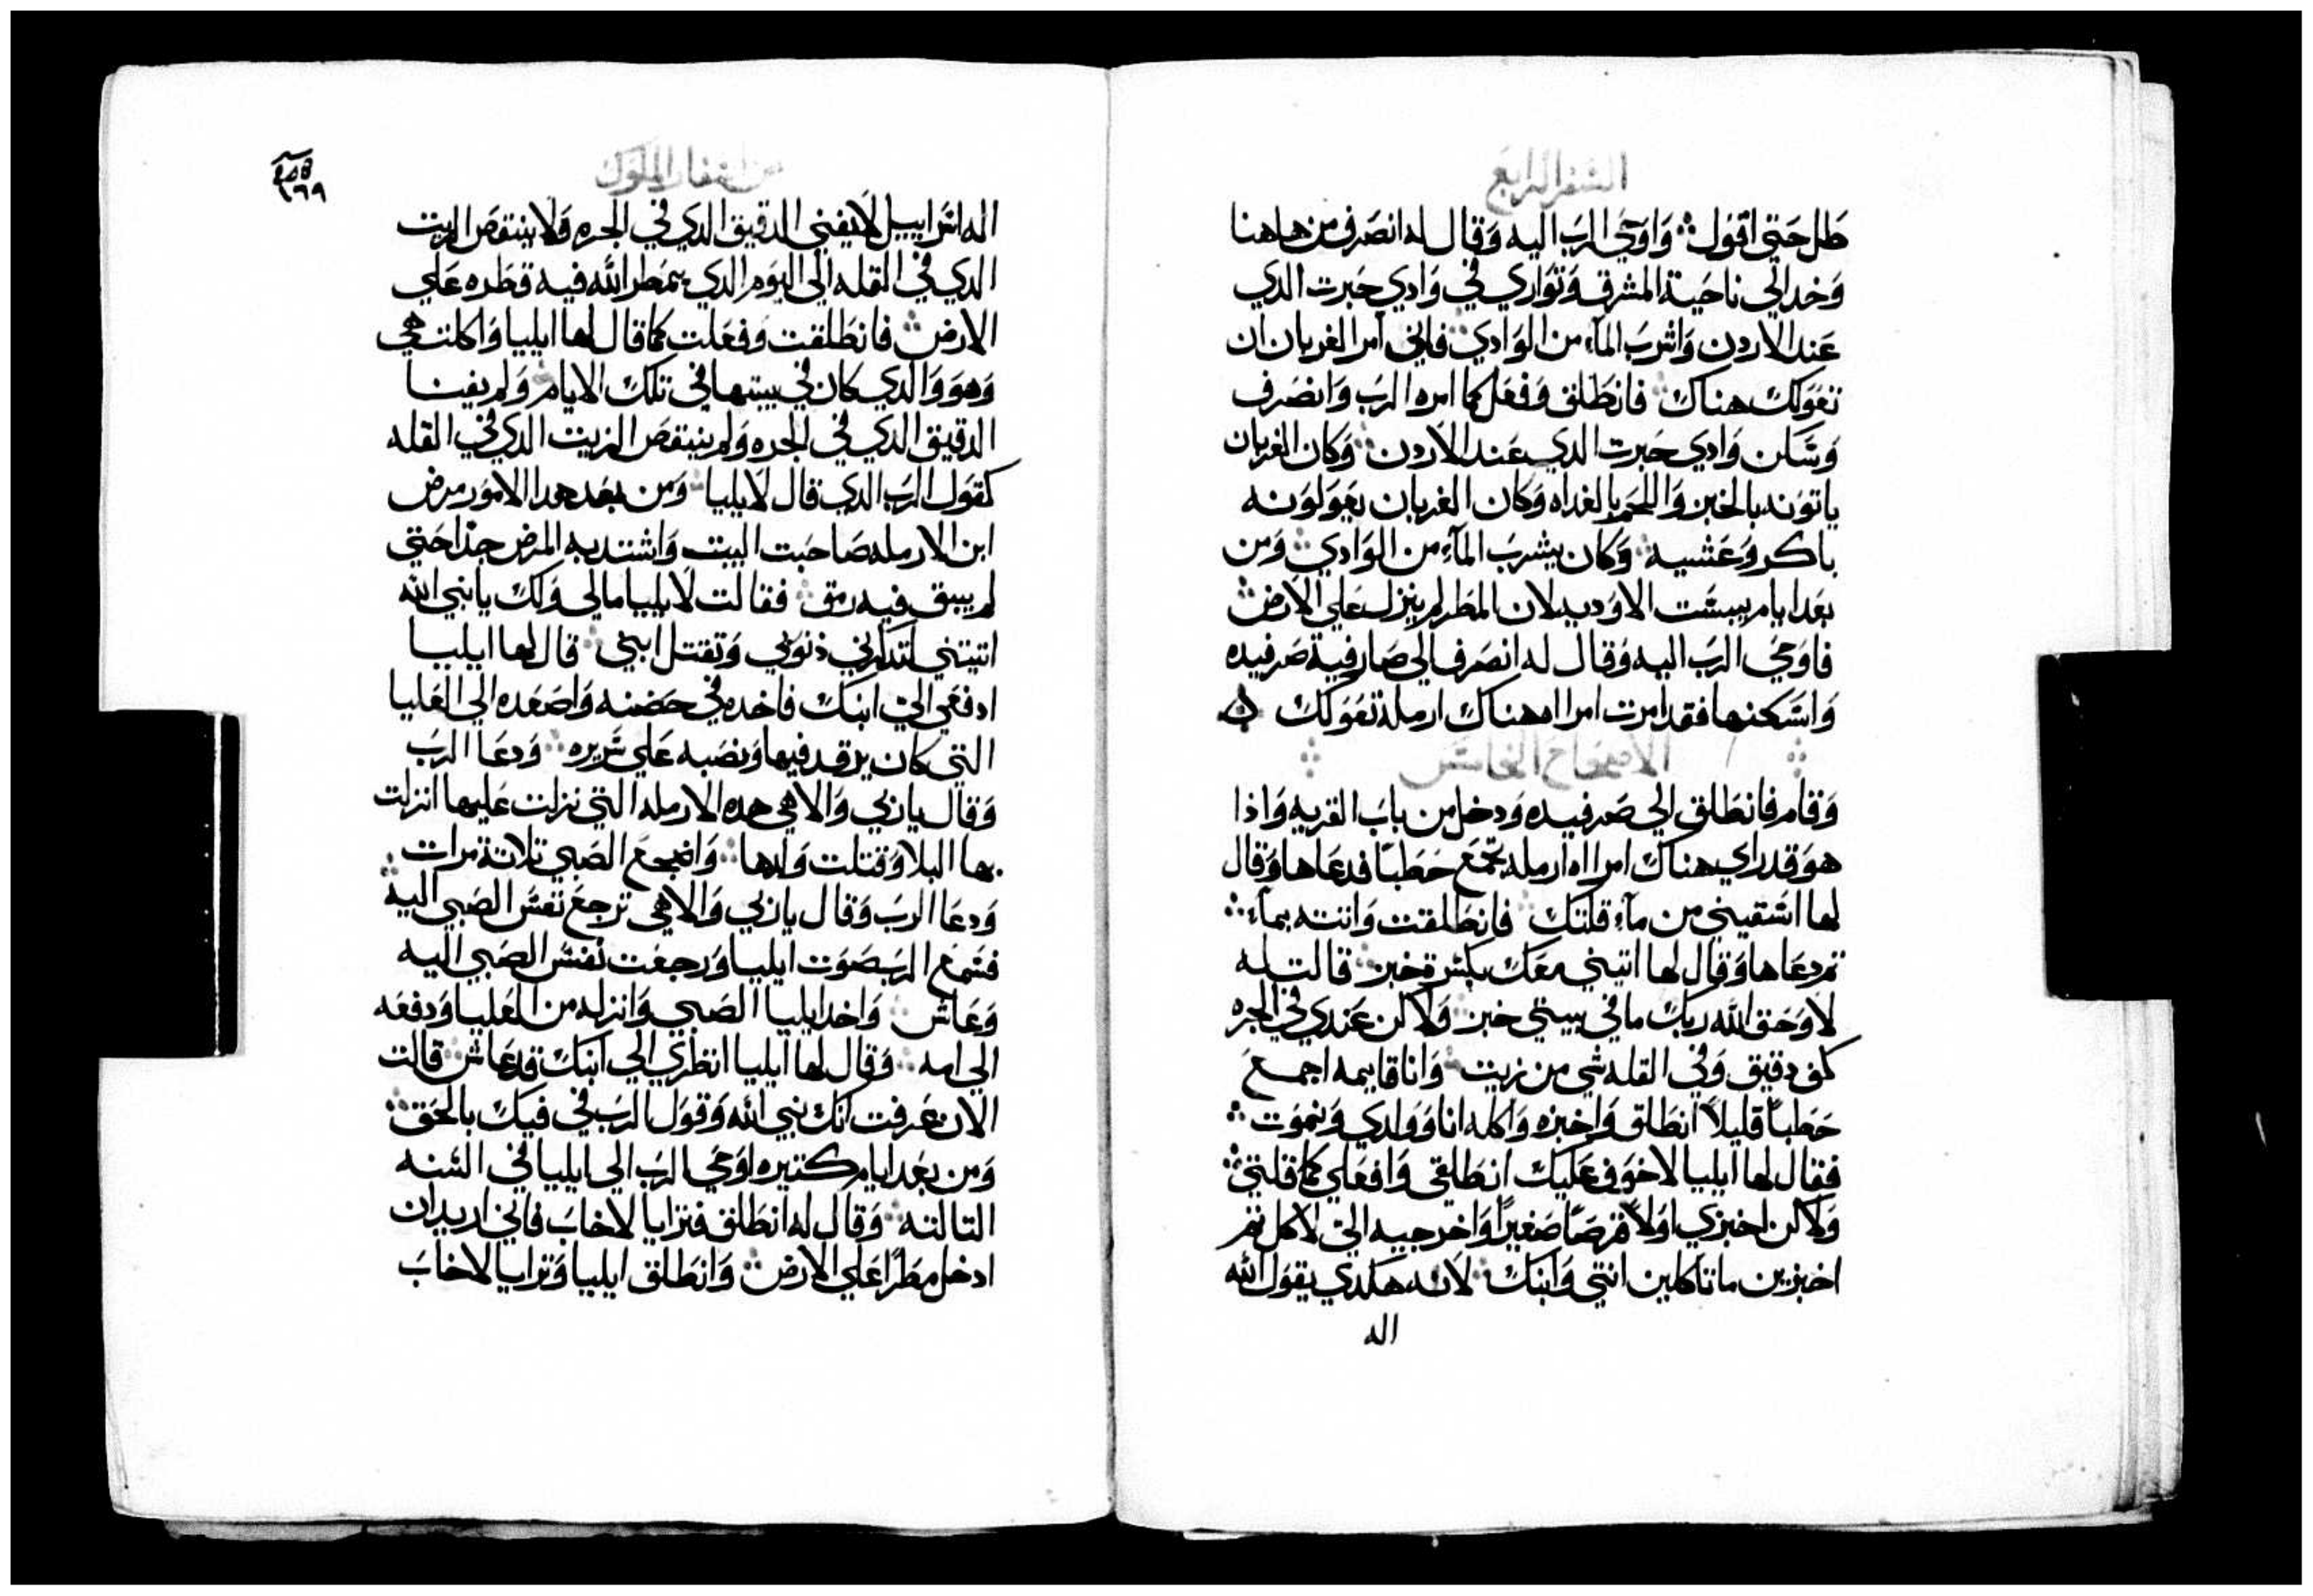 السفر الرابع
طل حتى اقول ❖ وَاوحَي الرَب اليه وَقال له انصَرف من هاهنا
وَخد الي ناحَية المشرق وَتوَاري في وَادي حَبرت الدي
عَند الاردن وَاشرَب المآء من الوَادي ❖ فاني آمر الغربان ان
تعَوَلك هناك ❖ فانطَلق وَفعَل كما امره الرَب وَانصَرف
وَسَكن وَادي حَبرت الدي عَند الاردن ❖ وَكان الغربان
ياتوَنه بالخبز وَاللحَم بالغداه وَكان الغربان يعَولوَنه
باكر وَعَشيه ❖ وَكان يشرَب المآء من الوَادي ❖ وَمن
بعَد ايام يبسَت الاوَديه لان المطَر لم ينزل عَلي الارض ❖
فاوَحَي الرَب اليه وَقال له انصَرف الي صَارفية صَرفيده
وَاسَكنها فقد امرت امراه هناك ارمله تعَوَلك
الاصحاح الخامس
وَقام فانطَلق الي صَرفيده وَدخل من باب القريه وَاذا
هوَ قد راي هناك امراه ارمله تجمَع حَطبًا فدعَاها وَقال
لها اسَقيني من مآء قلتك ❖ فانطَلقت وَاتته بمآء ❖
تم دعَاها وَقال لها اتيني معَك بكسَرة خبز ❖ قالت له
لا وَحَق الله ربك ما في بيتي خبز ❖ وَلاكن عَندي في الجره
كف دقيق وَفي القله شي من زيت ❖ وَانا قايمه اجمعَ
حَطبًا قليلاً انطَلق وَاخبزه وَاكله انا وَوَلدي وَنموَت ❖
فقال لها ايليا لا خوَف عَليك انطَلقي وَافعَلي كما قلتي ❖
وَلاكن اخبزي اوَلاً قرصًا صَغيرًا وَاخرجيه الي لاكل تم
اخبزين ما تاكلين انتي وَابنك ❖ لانه هكدي يقوَل الله
اله
من اسفار الملوك
١٦٩
اله اسَراييل لا يفني الدقيق الدي في الجره وَلا ينتقصَ الزيت
الدي في القله الي اليوَم الدي يمطَر الله فيه قطَره عَلي
الارض ❖ فانطَلقت وَفعَلت كما قال لها ايليا وَاكلت هي
وَهوَ وَالدي كان في بيتها في تلك الايام ❖ وَلم يفنا
الدقيق الدي في الجره وَلم ينتقصَ الزيت الدي في القله
كقوَل الرَب الدي قال لايليا ❖ وَمن بعَد هدا الاموَر مرض
ابن الارمله صَاحَبت البيت وَاشتد به المرض جدًا حَتي
لم يبق فيه رمق ❖ فقالت لايليا مالي وَلك يا نبي الله
اتيتني لتدكرني ذنوَبي وَتقتل ابني ❖ قال لها ايليا
ادفعَي الي ابنك فاخده في حَضنه وَاصَعَده الي العَليا
التي كان يرقد فيها وَنصَبه عَلي سَريره ❖ وَدعَا الرَب
وَقال يا ربي وَالاهي هده الارمله التي نزلت عَليها انزلت
بها البلا وَقتلت وَلدها ❖ وَاضجعَ الصَبي تلاتة مرات ❖
وَدعَا الرَب وَقال يا ربي وَالاهي ترجعَ نفسَ الصَبي اليه
فسَمعَ الرَب صَوَت ايليا وَرجعَت نفسَ الصَبي اليه
وَعَاش ❖ وَاخد ايليا الصَبي وَانزله من العَليا وَدفعَه
الي امه ❖ وَقال لها ايليا انظري الي ابنك قد عَاش ❖ قالت
الان عَرفت انك نبي الله وَقوَل الرَب في فيك بالحَق ❖
وَمن بعَد ايام كتيره اوَحَي الرَب الي ايليا في السَنه
التالته ❖ وَقال له انطَلق فترايا لاخاب فاني اريد ان
ادخل مطَرًا عَلي الارض ❖ وَانطَلق ايليا وَترايا لاخاب